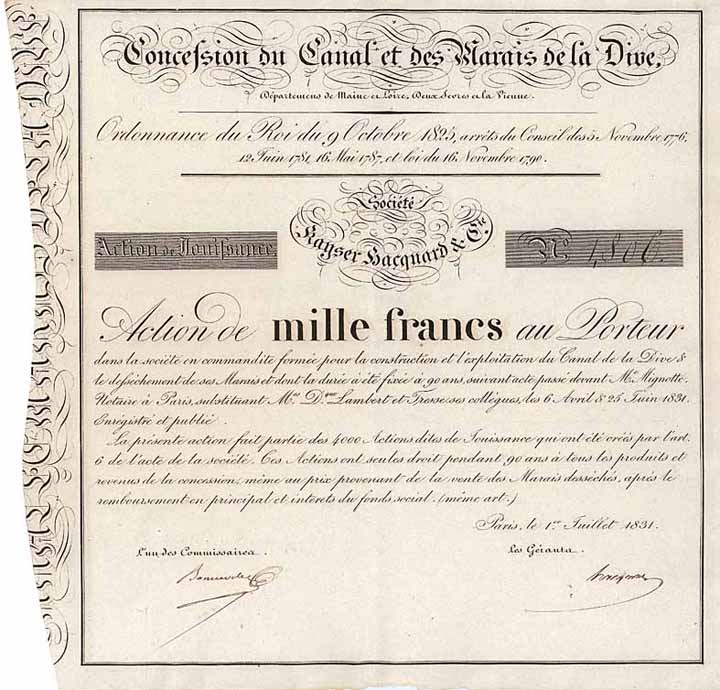 Concession du Canal et des Marais de la Dive,
Départemens de Maine et Loire, Deux Sevres et la Vienne.
Ordonnance du Roi du 9 Octobre 1825, arrêts du Conseil des 5 Novembre 1776,
12 Juin 1781, 16 Mai 1787, et loi du 16 Novembre 1790.
Société
Kayser Hacquard & Cie
Action de Jouissance
No 1,806.
Action de mille francs au Porteur
dans la société en commandite formée pour la construction et l'exploitation du Canal de la Dive &
le desséchement de ses Marais et dont la durée a été fixée à 90 ans, suivant acte passé devant Me Mignotte
Notaire à Paris, substituant Mes Dque Lambert et Tresse ses collègues, les 6 Avril & 25 Juin 1831.
Enregistré et publié.
La présente action fait partie des 4000 Actions dites de Jouissance qui ont été créés par l'art.
6 de l'acte de la société. Ces Actions ont seules droit pendant 90 ans à tous les produits et
revenus de la concession, même au prix provenant de la vente des Marais desséchés, après le
remboursement en principal et interêts du fonds social. (même art.)
Paris, le 1er Juillet 1831.
L'un des Commissaires.
Les Gérants.